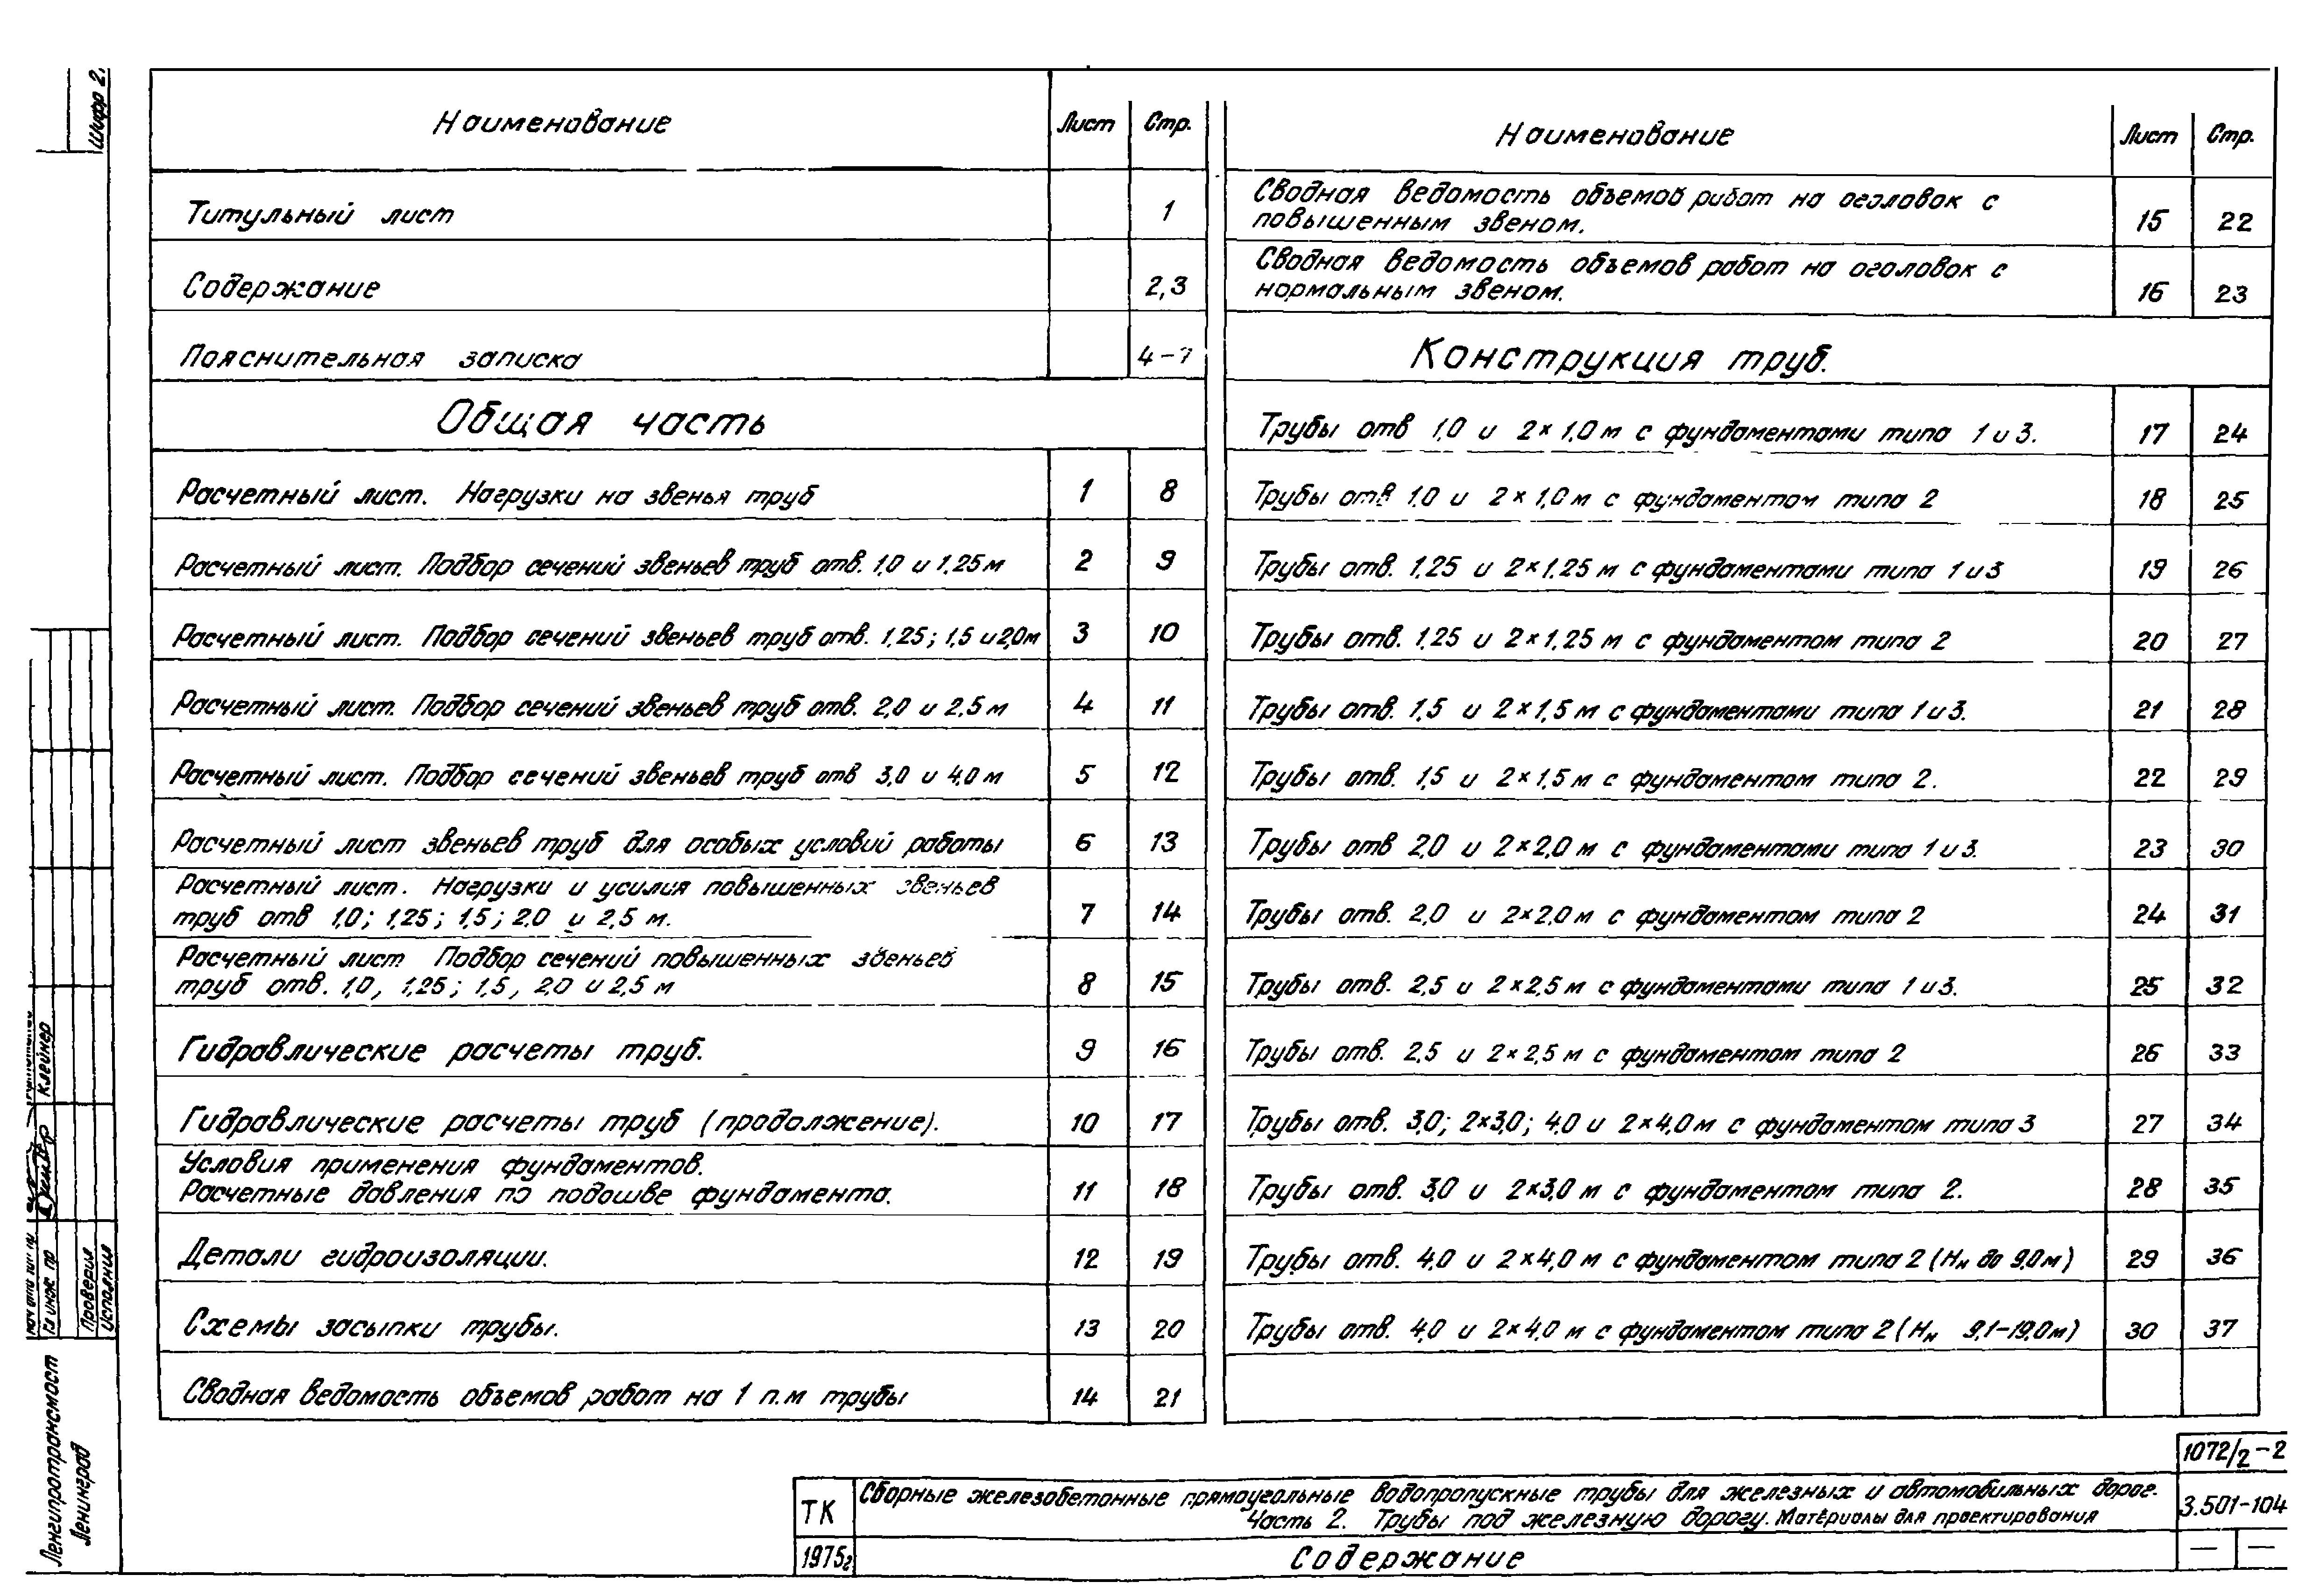 Наименование Лист Стр.
Титульный лист 1
Содержание 2,3
Пояснительная записка 4-7
Общая часть
Расчетный лист. Нагрузки на звенья труб 1 8
Расчетный лист. Подбор сечений звеньев труб отв. 1,0 и 1,25 м 2 9
Расчетный лист. Подбор сечений звеньев труб отв. 1,25; 1,5 и 2,0 м 3 10
Расчетный лист. Подбор сечений звеньев труб отв. 2,0 и 2,5 м 4 11
Расчетный лист. Подбор сечений звеньев труб отв 3,0 и 4,0 м 5 12
Расчетный лист звеньев труб для особых условий работы 6 13
Расчетный лист. Нагрузки и усилия повышенных звеньев
труб отв 1,0; 1,25; 1,5; 2,0 и 2,5 м. 7 14
Расчетный лист Подбор сечений повышенных звеньев
труб отв. 1,0, 1,25; 1,5, 2,0 и 2,5 м 8 15
Гидравлические расчеты труб. 9 16
Гидравлические расчеты труб (продолжение). 10 17
Условия применения фундаментов.
Расчетные давления по подошве фундамента. 11 18
Детали гидроизоляции. 12 19
Схемы засыпки трубы. 13 20
Сводная ведомость объемов работ на 1 п.м трубы 14 21
Наименование Лист Стр.
Сводная ведомость объемов работ на оголовок с
повышенным звеном. 15 22
Сводная ведомость объемов работ на оголовок с
нормальным звеном. 16 23
Конструкция труб.
Трубы отв 1,0 и 2×1,0 м с фундаментами типа 1 и 3. 17 24
Трубы отв 1,0 и 2×1,0 м с фундаментом типа 2 18 25
Трубы отв. 1,25 и 2×1,25 м с фундаментами типа 1 и 3 19 26
Трубы отв. 1,25 и 2×1,25 м с фундаментом типа 2 20 27
Трубы отв. 1,5 и 2×1,5 м с фундаментами типа 1 и 3. 21 28
Трубы отв. 1,5 и 2×1,5 м с фундаментом типа 2. 22 29
Трубы отв 2,0 и 2×2,0 м с фундаментами типа 1 и 3. 23 30
Трубы отв. 2,0 и 2×2,0 м с фундаментом типа 2 24 31
Трубы отв. 2,5 и 2×2,5 м с фундаментами типа 1 и 3. 25 32
Трубы отв. 2,5 и 2×2,5 м с фундаментом типа 2 26 33
Трубы отв. 3,0; 2×3,0; 4,0 и 2×4,0 м с фундаментом типа 3 27 34
Трубы отв. 3,0 и 2×3,0 м с фундаментом типа 2. 28 35
Трубы отв. 4,0 и 2×4,0 м с фундаментом типа 2 (Hн до 9,0 м) 29 36
Трубы отв. 4,0 и 2×4,0 м с фундаментом типа 2 (Hн 9,1-19,0 м) 30 37
1072/2-2
ТК Сборные железобетонные прямоугольные водопропускные трубы для железных и автомобильных дорог.
Часть 2. Трубы под железную дорогу. Материалы для проектирования
3.501-104
1975г Содержание — —
Шифр
Клейнер
Гл инж пр
Проверил
Исполнил
Ленгипротрансмост
Ленинград